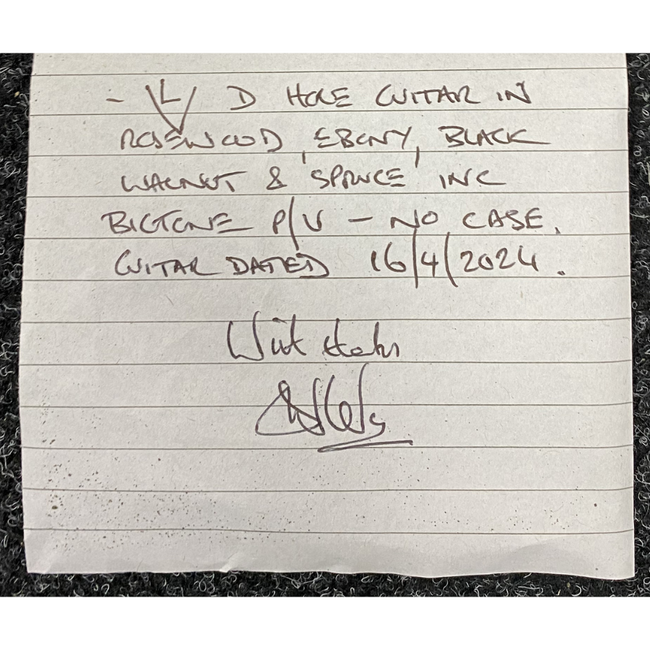 - L D HOLE GUITAR IN
ROSEWOOD, EBONY, BLACK
WALNUT & SPRUCE INC
BIGTONE P/U - NO CASE.
GUITAR DATED 16/4/2024.
With